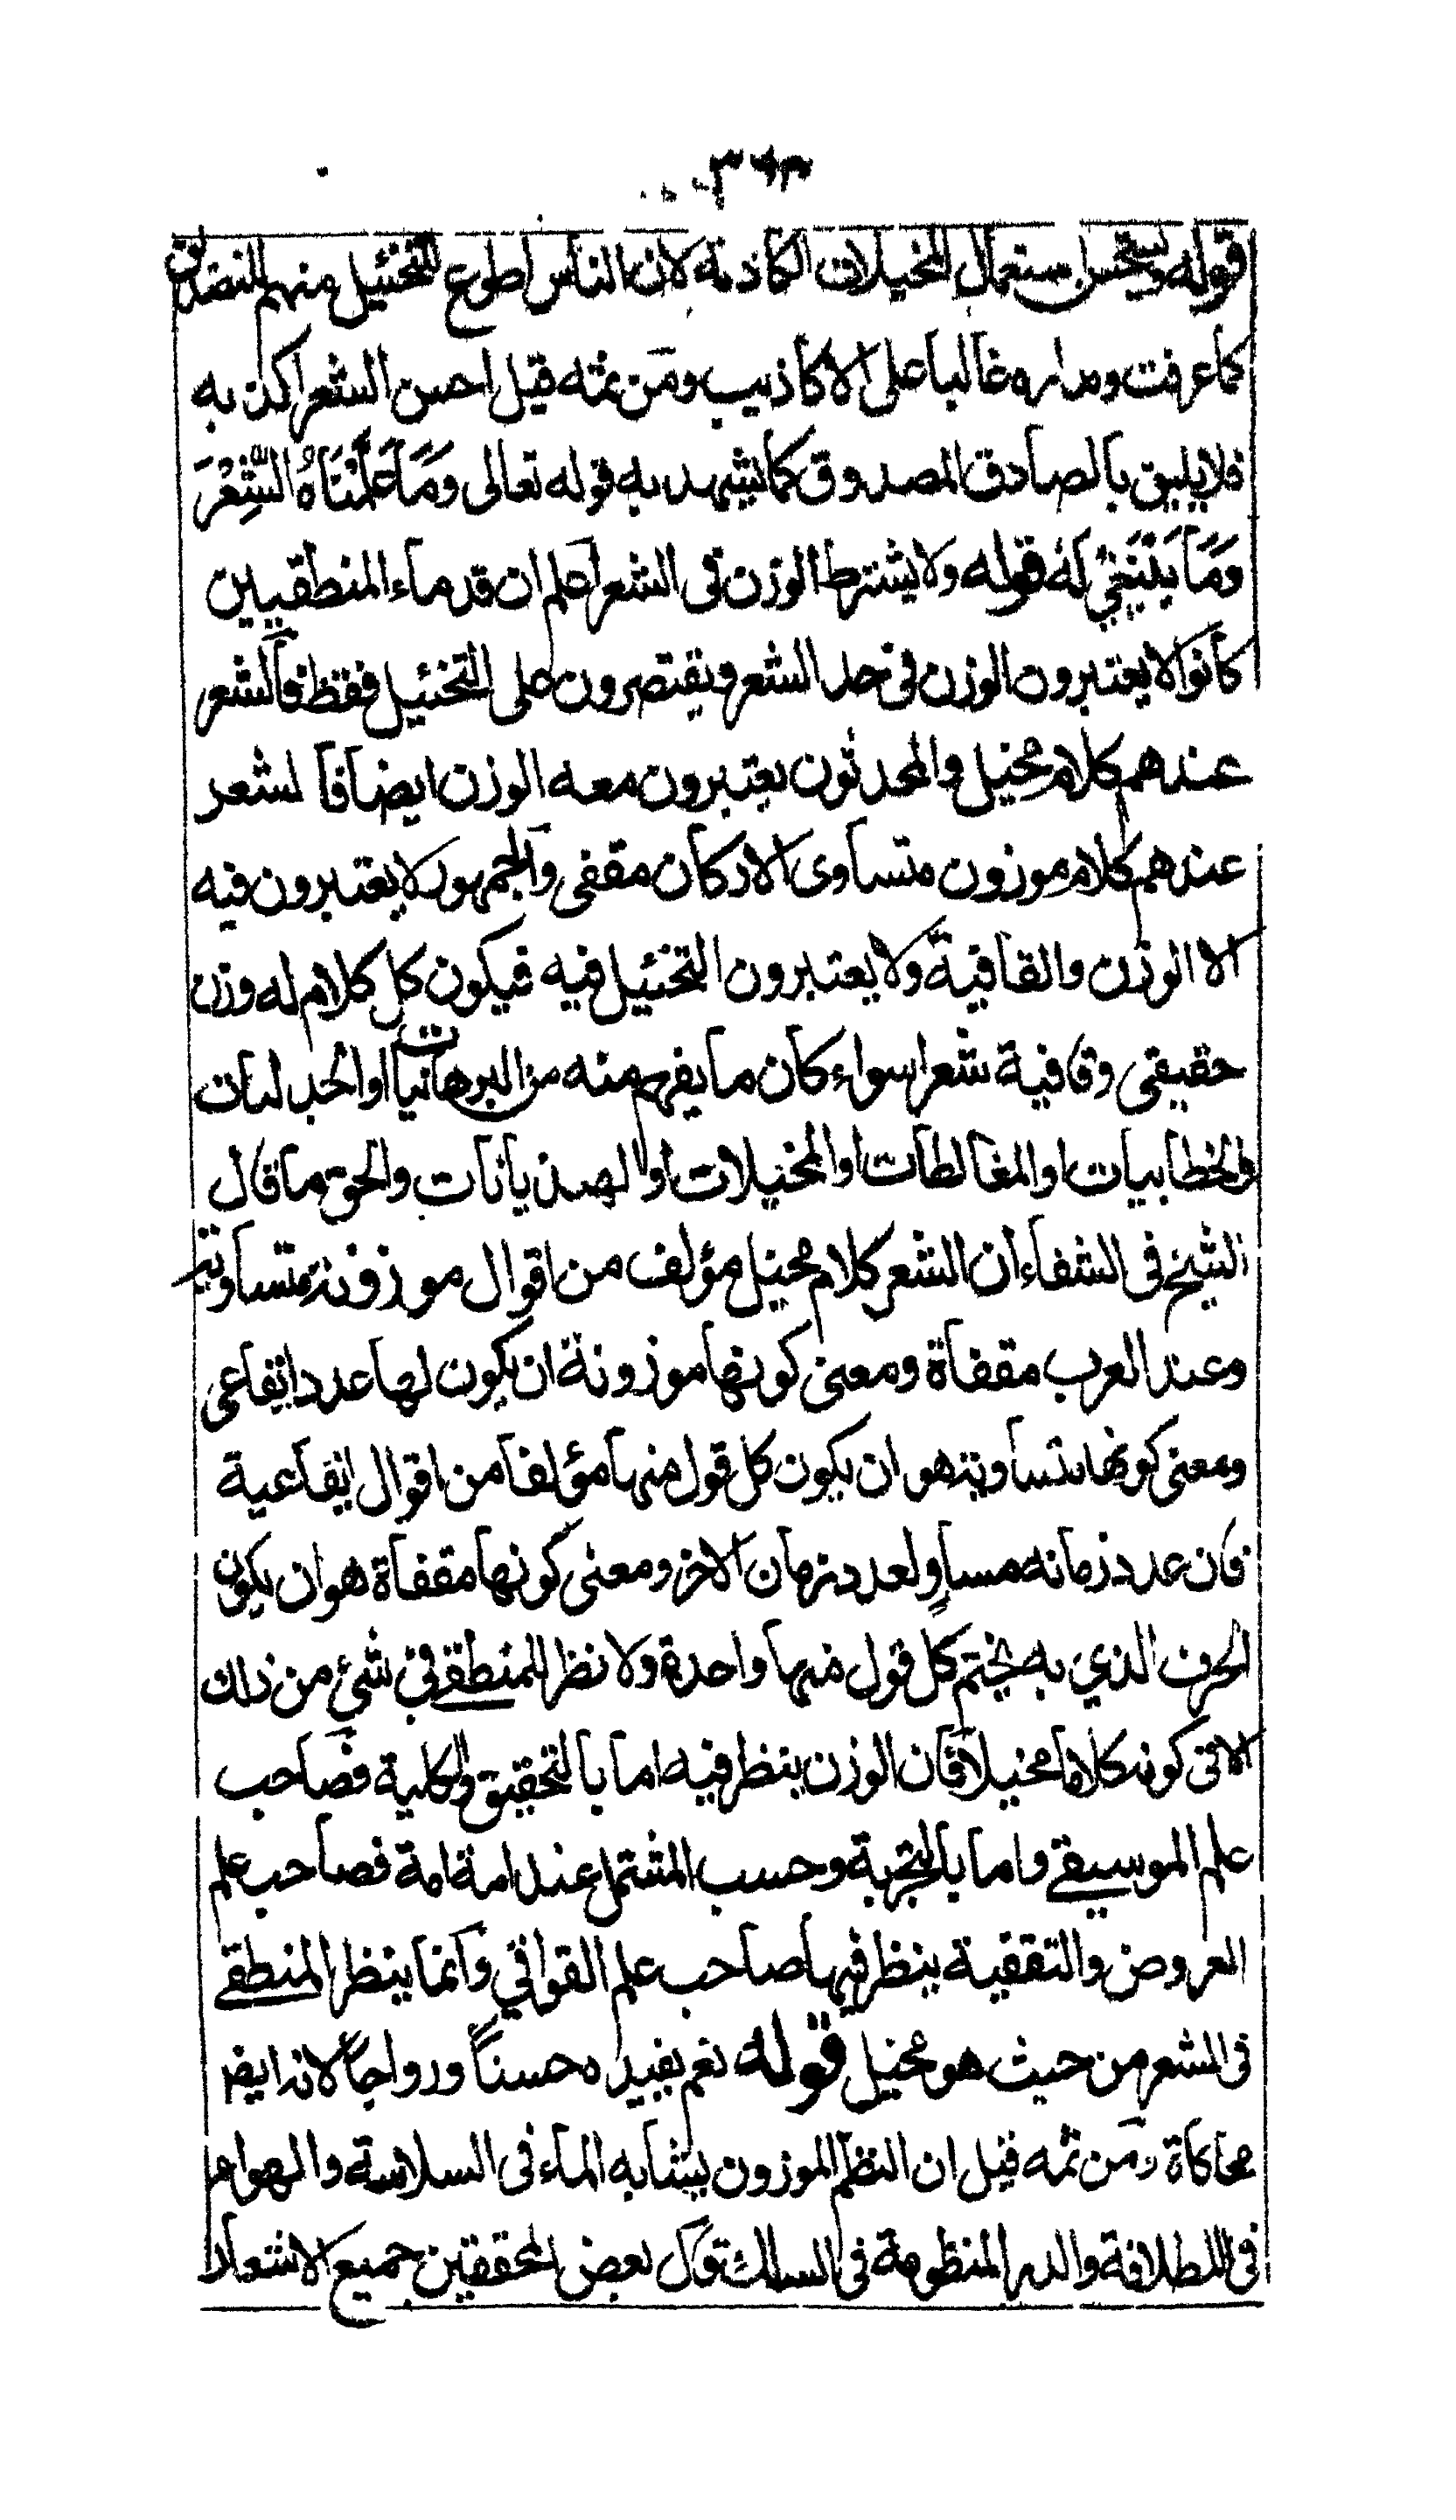 ٣٦٣
قوله ويستحسن استعمال المخيلات الكاذبة لان الناس اطوع للتخئيل منهم للتصديق
كما عرفت ومداره غالبا على الاكاذيب ومن ثمه قيل احسن الشعر اكذبه
فلا يليق بالصادق المصدوق كما يشهد به قوله تعالى وَمَا عَلَّمْنَاهُ الشِّعْرَ
وَمَا يَنْبَغِيْ لَهُ قوله ولا يشترط الوزن فى الشعر اعلم ان قدماء المنطقيين
كانوا لا يعتبرون الوزن فى حد الشعر ويقتصرون على التخئيل فقط فالشعر
عندهم كلام مخيل والمحدثون يعتبرون معه الوزن ايضا فالشعر
عندهم كلام موزون متساوى الاركان مقفى والجمهور لا يعتبرون فيه
الا الوزن والقافية ولا يعتبرون التخئيل فيه فيكون كل كلام له وزن
حقيقى وقافية شعرا سواء كان ما يفهم منه من البرهانيات او الجدليات
والخطابيات او المغالطات او المخيلات او الهذيانات والحق ما قال
الشيخ فى الشفاء ان الشعر كلام مخيل مؤلف من اقوال موزونة متساوية
وعند العرب مقفاة ومعنى كونها موزونة ان يكون لها عدد ايقاعى
ومعنى كونها متساوية هو ان يكون كل قول منها مؤلفا من اقوال ايقاعية
فان عدد زمانه مساوٍ لعدد زمان الاخر ومعنى كونها مقفاة هو ان يكون
الحرف الذي به يختم كل قول منها واحدة ولا نظر للمنطقے فى شئ من ذلك
الا فى كونه كلاما مخيلا فان الوزن ينظر فيه اما بالتحقيق والكلية فصاحب
علم الموسيقے واما بالتجربة وحسب المشتمل عند امة امة فصاحب علم
العروض والتقفية ينظر فيها صاحب علم القوافي وانما ينظر المنطقے
فى الشعر من حيث هو مخيل قوله نعم يفيده حسناً ورواجاً لانه ايضا
محاكاة ومن ثمه قيل ان النظم الموزون يشابه الماء فى السلاسة والهواء
فى اللطافة والدرر المنظومة فى السلك قال بعض المحققين جميع الاشعار